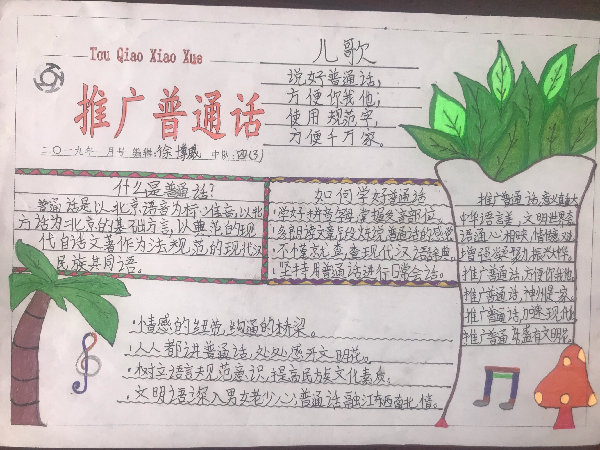 Tou Qiao Xiao Xue
推广普通话
二〇一九年 月 号 编辑:徐博威 中队:四(3)
儿歌
说好普通话,
方便你我他;
使用规范字,
方便千万家。
什么是普通话?
普通话是以北京语音为标准音,以北
方话为北京的基础方言,以典范的现
代白话文著作为法规范的现代汉
民族共同语。
如何学好普通话
·学好拼音字母,掌握发音部位。
·不懂就查,查现代汉语辞典。
·坚持用普通话进行日常会话。
·情感的纽带,沟通的桥梁。
·人人都讲普通话,处处感开文明花。
·树立语言规范意识,提高民族文化素质。
·文明语深入男女老少心,普通话融江东西南北情。
推广普通话,意义重大
中华语言美,文明世界
语通心相映,情
增强凝聚力,振兴
推广普通话,方便你我他。
推广普通话,神州是一家。
推广普通话,
推广普通话,盛开文明花。